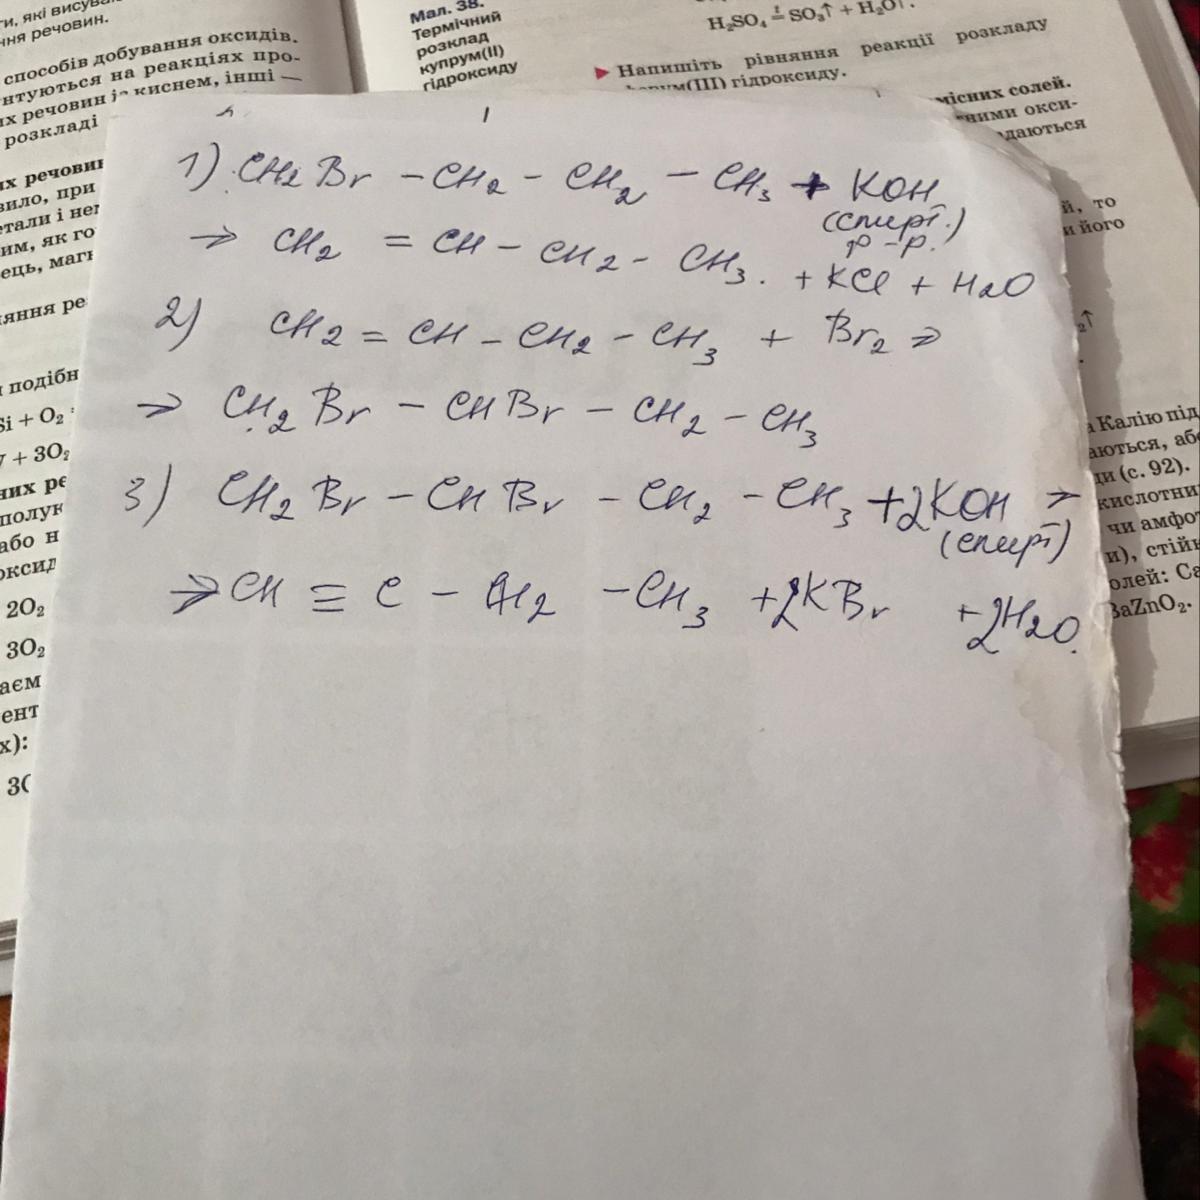 ти, які
ня речовин.
способів добування оксидів.
нтуються на реакціях про-
их речовин із киснем, інші —
розкладі
их речовин
вило, при
етали і
ким, як
ець,
яння ре
подібн
Si + O₂
+ 3O₂
них ре
полук
або н
оксид
2O₂
3O₂
аєм
ент
х):
Мал. 38.
Термічний
розклад
купрум(II)
гідроксиду
H₂SO₄ =ᵗ SO₃↑ + H₂O↑.
▶ Напишіть рівняння реакції розкладу
ферум(III) гідроксиду.
місних солей.
ними окси-
адаються
й, то
и його
₂↑
а Калію під
аються, або
ди (с. 92).
кислотни
чи амфот
и), стійк
олей: Ca
BaZnO₂.
1) CH₂Br – CH₂ – CH₂ – CH₃ + KOH
(спирт.)
р-р.
→ CH₂ = CH – CH₂ – CH₃. + KCl + H₂O
2) CH₂ = CH – CH₂ – CH₃ + Br₂ →
→ CH₂Br – CHBr – CH₂ – CH₃
3) CH₂Br – CHBr – CH₂ – CH₃ + 2KOH →
(спирт)
→ CH ≡ C – CH₂ – CH₃ + 2KBr + 2H₂O.